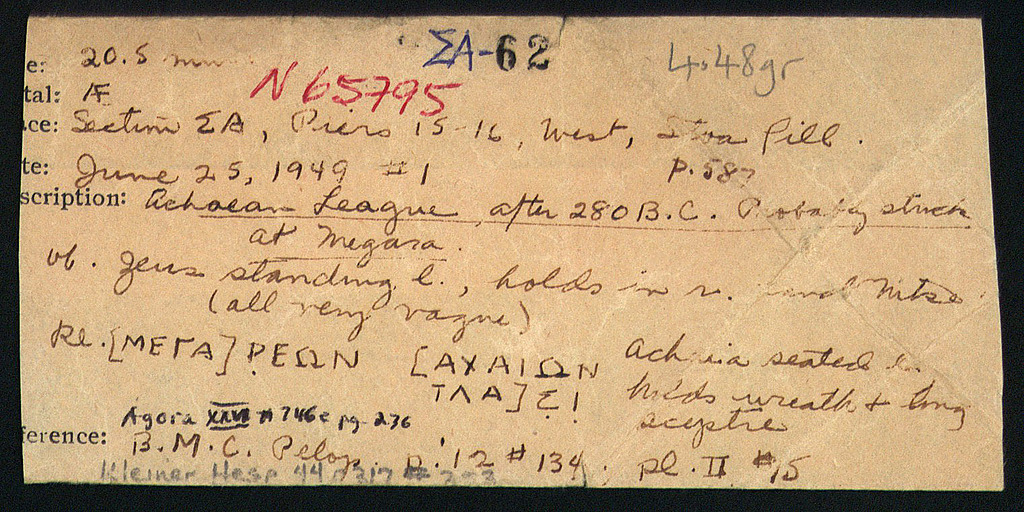 ΣΑ-62
4.48gr
e: 20.5 mm
N 65795
tal: Æ
ce: Section ΣΑ, Piers 15-16, West, Stoa Pill.
te: June 25, 1949 #1
p. 587
scription: Achaean League, after 280 B.C. Probably struck
at Megara.
ob. Zeus standing l., holds in r. hand Nike
(all very vague)
Re. [ΜΕΓΑ]ΡΕΩΝ [ΑΧΑΙΩΝ
ΤΛΑ]ΣΙ
Achaia seated l.
holds wreath & long
sceptre
Agora XXVI # 746e pg. 236
ference: B.M.C. Pelop. p. 12 #134, pl. II #15
Kleiner Hesp 44 p 317